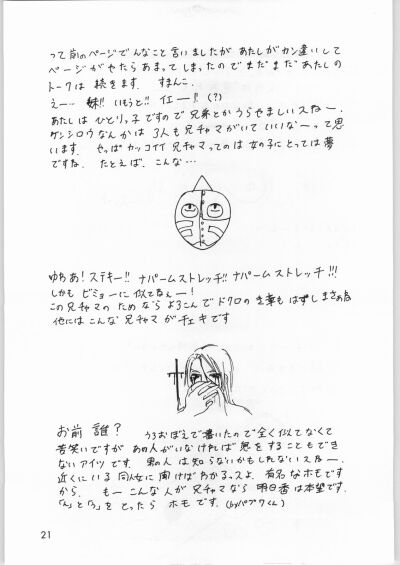 って前のページでんなこと言いましたがあたしがカン違いして
ページがやたらあまってしまったのでまだまだあたしの
トークは続きます。すまんこ。
えー… 妹!! いもうと!! イエー!! (?)
あたしはひとりっ子ですので兄弟とかうらやましいスねー.
ケンシロウなんかは3人も兄チャマがいていいなーって思
います。やっぱカッコイイ兄チャマってのは女の子にとっては夢
ですね. たとえば. こんな…
ゆちあ! ステキー!! ナパームストレッチ!! ナパームストレッチ!!!
しかもビミョーに似てねぇー!
この兄チャマのためならよろこんでドクロの
もはずしまさぁね
他にはこんな兄チャマがチェキです
お前 誰?
うろおぼえで書いたので全く似てなくて
苦笑いですがあの人がいなければ息をすることもでき
ないアイツです. 男の人は知らないかもしれないスねー.
近くにいる同人女に聞けばわかるッスよ. 有名なホモです
から. もーこんな人が兄チャマなら明日香は本望です.
「ん」と「う」をとったらホモです. (byパプワくん)
21